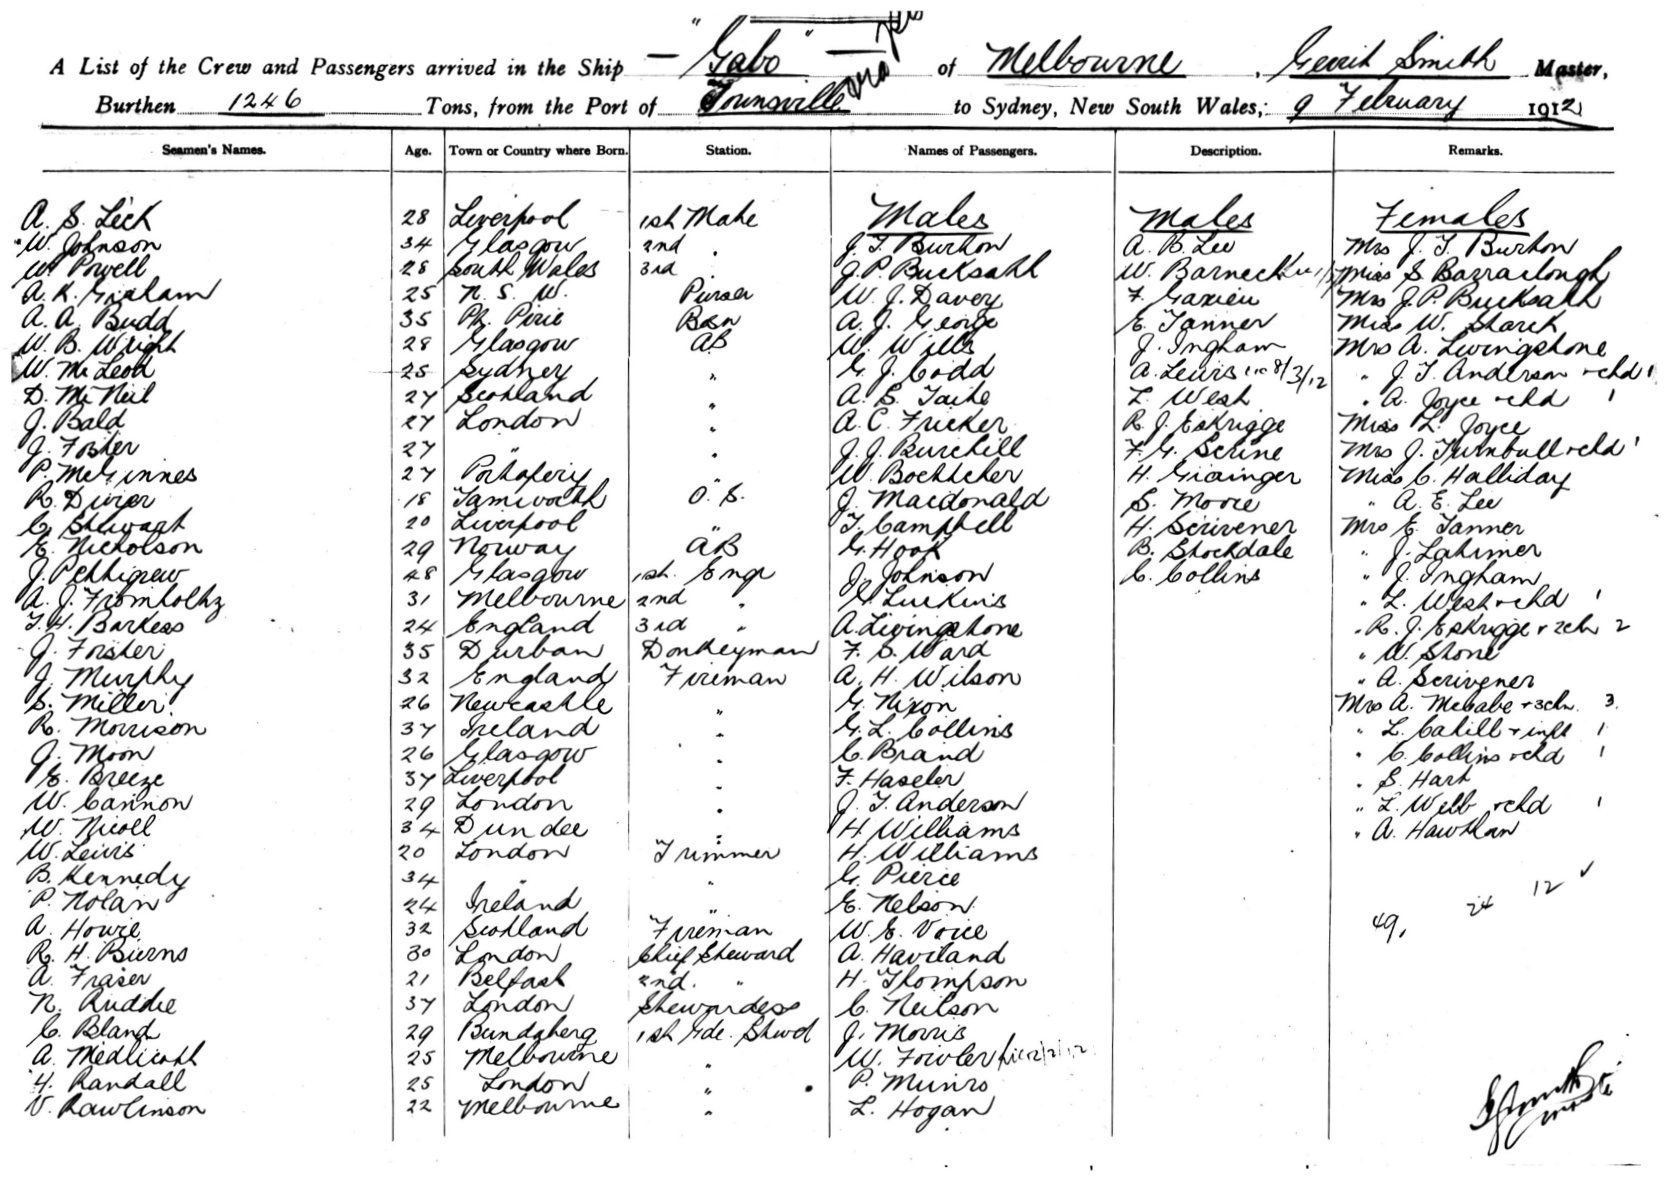 "Gabo"
A List of the Crew and Passengers arrived in the Ship "Gabo" of Melbourne, Gerrit Smith Master,
Burthen 1246 Tons, from the Port of Townsville to Sydney, New South Wales; 9 February 1912
Seamen's Names. Age. Town or Country where Born. Station. Names of Passengers. Description. Remarks.
Males Males Females
A. S. Leck 28 Liverpool 1st Mate
W. Johnson 34 Glasgow 2nd " J. T. Burton A. B. Lee Mrs J. T. Burton
W. Powell 28 South Wales 3rd " J. P. Bucksath W. Barneck Miss S. Barraclough
A. K. Graham 25 N. S. W. Purser W. J. Davey F. Mrs J. P. Bucksath
A. A. Budd 35 Pt. Pirie Bsn A. J. George E. Tanner Miss W. Stark
W. B. Wright 28 Glasgow AB W. Wills J. Ingham Mrs A. Livingstone
W. McLeod 25 Sydney " G. J. Codd A. Lewis 8/3/12 " J. T. Anderson + chd 1
D. McNeil 27 Scotland " A. S. Taite L. West " A. Joyce + chd 1
J. Bald 27 London " A. C. Fricker R. J. Eskrigge Miss L. Joyce
J. Foster 27 " " J. J. Burchill F. G. Scrine Mrs J. Turnbull + chd 1
P. McGinnes 27 Portafery " W. Boettcher H. Grainger Miss C. Halliday
R. Driver 18 Tamworth O. S. J. Macdonald S. Moore " A. E. Lee
C. Stewart 20 Liverpool " T. Campbell H. Scrivener Mrs E. Tanner
E. Nicholson 29 Norway AB G. Hook B. Stockdale " J. Latimer
J. Pettigrew 48 Glasgow 1st. Engr J. Johnson C. Collins " J. Ingham
A. J. Fromholtz 31 Melbourne 2nd " G. Luckins " L. West + chd 1
T. H. Barkess 24 England 3rd " A. Livingstone " R. J. Eskrigge + 2chn 2
J. Forster 35 Durban Donkeyman F. S. Ward " W. Stone
J. Murphy 32 England Fireman A. H. Wilson " A. Scrivener
S. Miller 26 Newcastle " G. Nixon Mrs A. McCabe + 3chn. 3.
R. Morrison 37 Ireland " G. L. Collins " L. Cahill + inft 1
J. Moon 26 Glasgow " C. Brand " C. Collins + chd 1
E. Breeze 37 Liverpool " F. Haseler " S. Hart
W. Cannon 29 London " J. T. Anderson " L. Webb + chd 1
W. Nicoll 34 Dundee " H. Williams " A. Hawthan
W. Lewis 20 London Trimmer H. Williams
B. Kennedy 34 " " G. Pierce
P. Nolan 24 Ireland " E. Nelson
A. Howie 32 Scotland Fireman W. E. Voice 49, 24 12
R. H. Bierns 30 London Chief Steward A. Haviland
A. Fraser 21 Belfast 2nd. " H. Thompson
N. Ruddie 37 London Stewardess C. Neilson
C. Bland 29 Bundaberg 1st Gde. Stwd J. Morris
A. Medlicott 25 Melbourne " W. Fowler
H. Randall 25 London " P. Munro
V. Rawlinson 22 Melbourne " L. Hogan